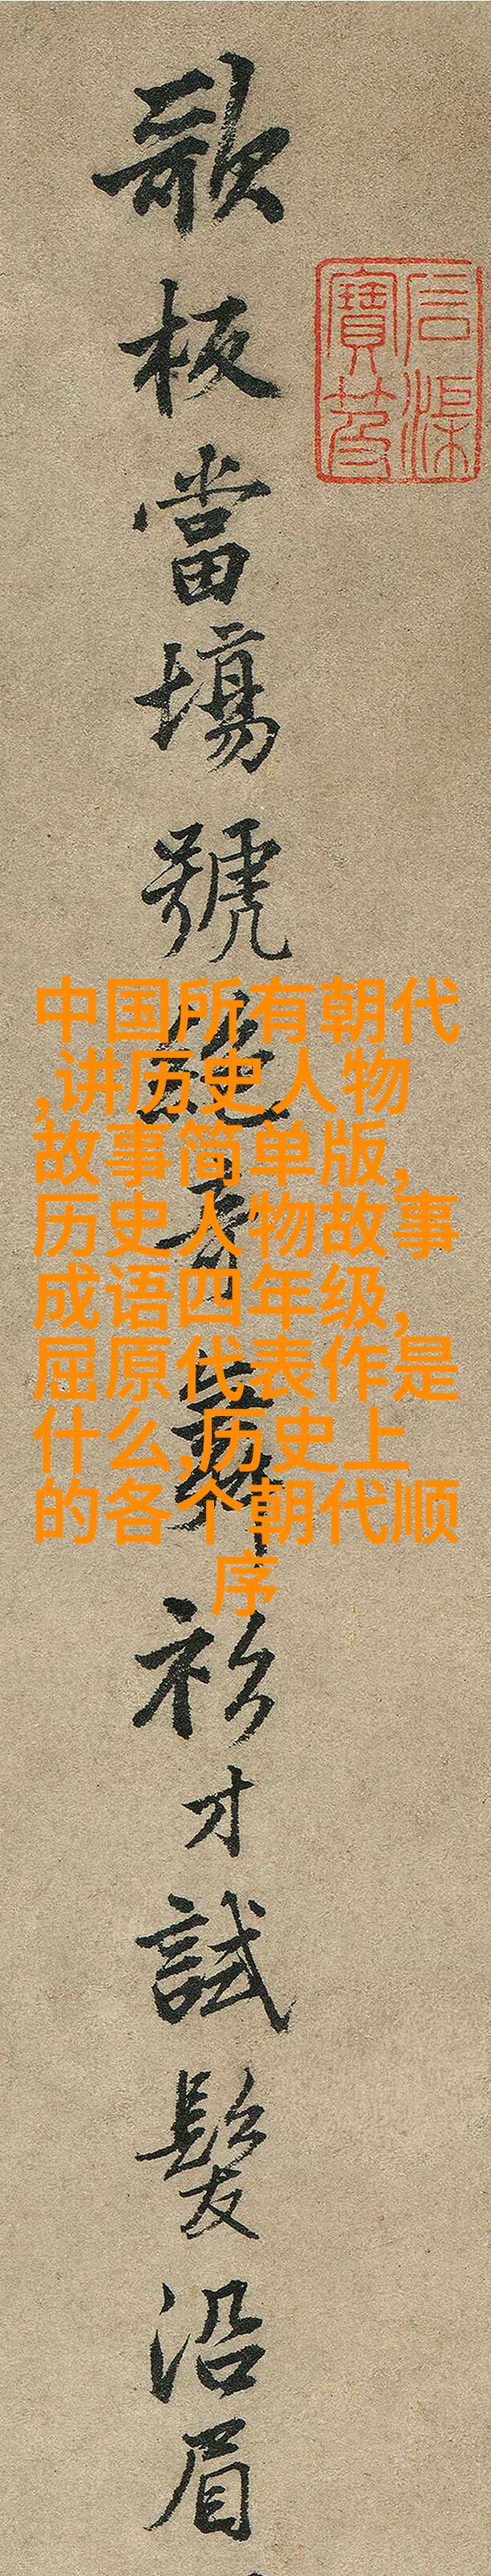 歌板當塲號絕奇舞衫才試髮沿眉
石渠
寶笈
中国所有朝代
,讲历史人物
故事简单版,
历史人物故事
成语四年级,
屈原代表作是
什么,历史上
的各个朝代顺
序